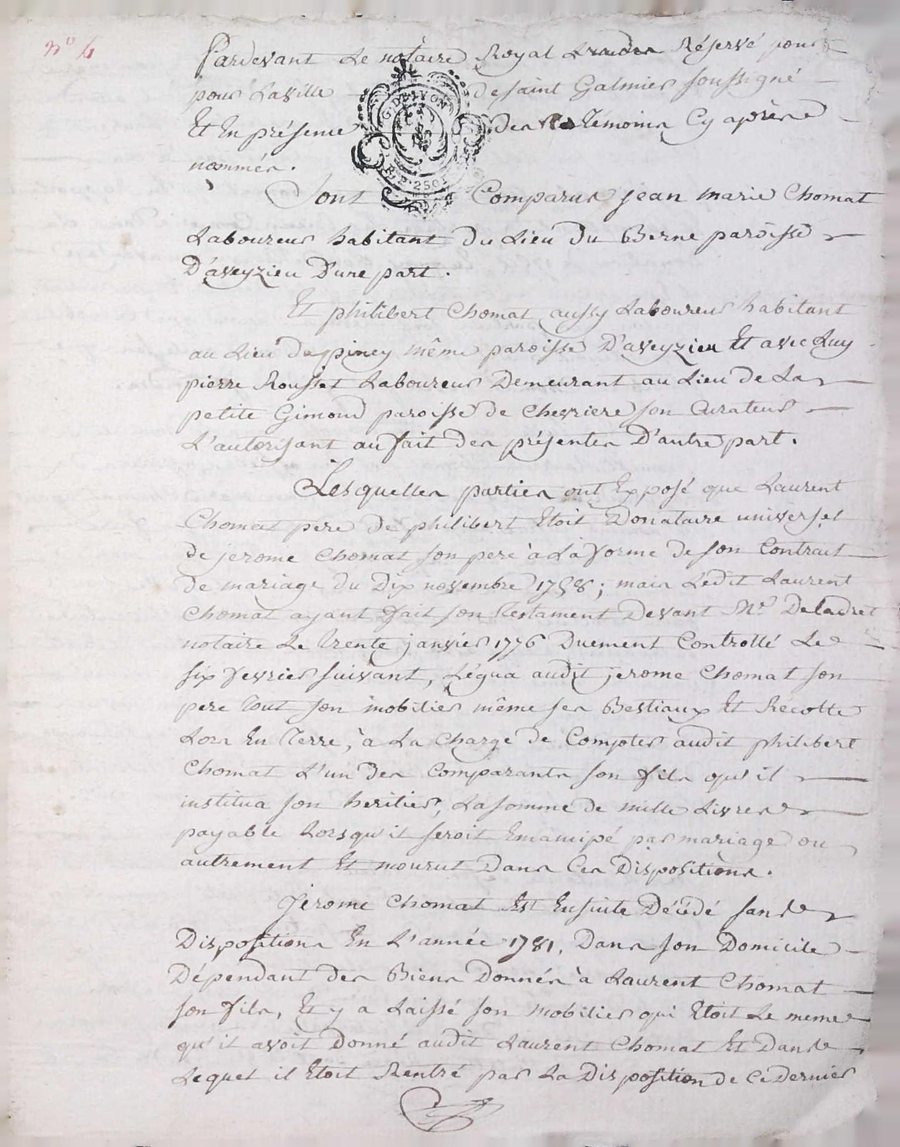 n° 4
Pardevant Le notaire Royal Réservé pour
pour Laville de saint Galmier soussigné
Et En présence des Temoins Cy après
nommés.
G. DE LYON
Sont Comparus jean marie Chomat
Laboureur habitant du Lieu du Berne paroisse
D'aveyzieu D'une part.
Et philibert Chomat aussy Laboureur habitant
au Lieu de piney même paroisse D'aveyzieu Et avec Luy
pierre Rousset Laboureur Demeurant au Lieu de La
petite Gimond paroisse de Chevriere son Curateur
L'autorisant au fait des présentes D'autre part.
Lesquelles parties ont Exposé que Laurent
Chomat pere de philibert Etoit Donataire universel
de jerome Chomat son pere à La forme de son Contrait
de mariage du Dix novembre 1758; mais Ledit Laurent
Chomat ayant fait son Testament Devant Me. Deladret
notaire Le Trente janvier 1776 Duement Controllé Le
six fevrier suivant, Légua audit jerome Chomat son
pere Tout son mobilier même ses Bestiaux Et Recolte
Lors En Terre, à La Charge de Compter audit philibert
Chomat L'un des Comparants son fils qu'il
institua son heritier, La somme de mille Livres
payable Lorsqu'il seroit Emancipé par mariage ou
autrement Et mourut Dans Ces Dispositions.
Jérome Chomat Est Ensuite Décédé sans
Dispositions En L'année 1781, Dans son Domicile
Dépendant des Biens Donnés à Laurent Chomat
son fils, Et y a Laissé son mobilier qui Etoit Le meme
qu'il avoit Donné audit Laurent Chomat Et Dans
Lequel il Etoit Rentré par La Disposition de Ce Dernier